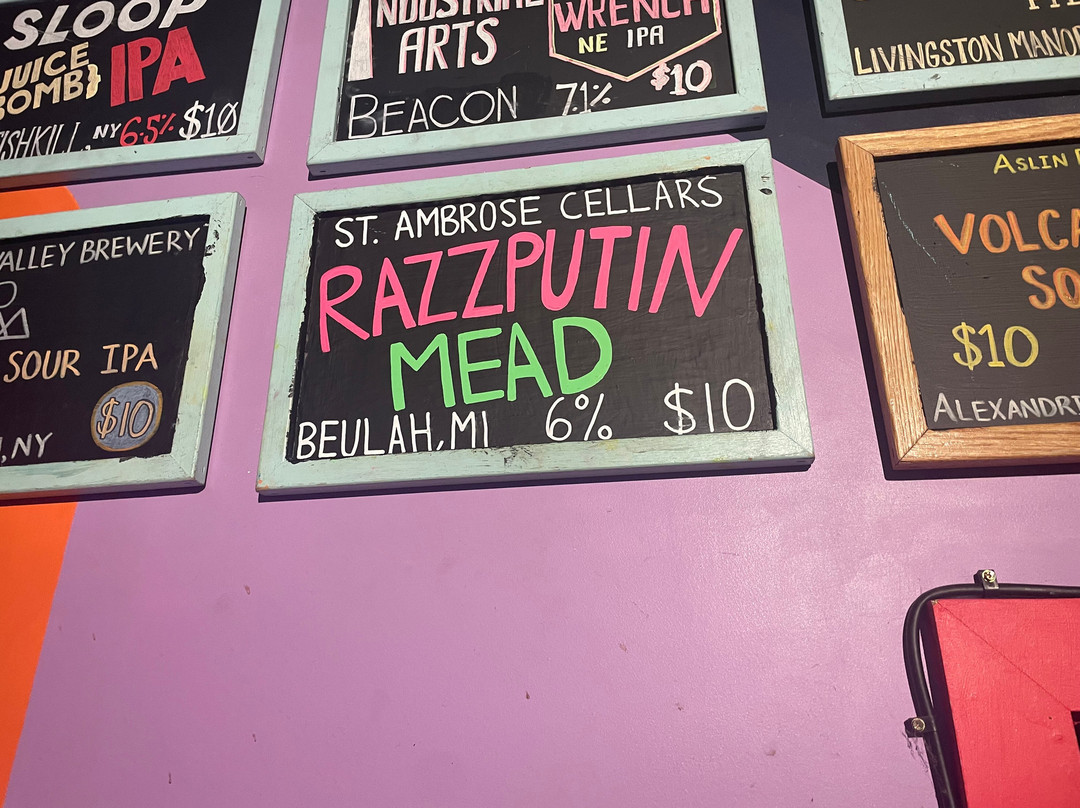 SLOOP
JUICE
BOMB}
IPA
FISHKILL, NY 6.5% $10
INDUSTRIAL
ARTS
WRENCH
NE IPA
$10
BEACON 7.1%
LIVINGSTON MANOR
VALLEY BREWERY
SOUR IPA
$10
, NY
ST. AMBROSE CELLARS
RAZZPUTIN
MEAD
BEULAH, MI 6% $10
ASLIN
$10